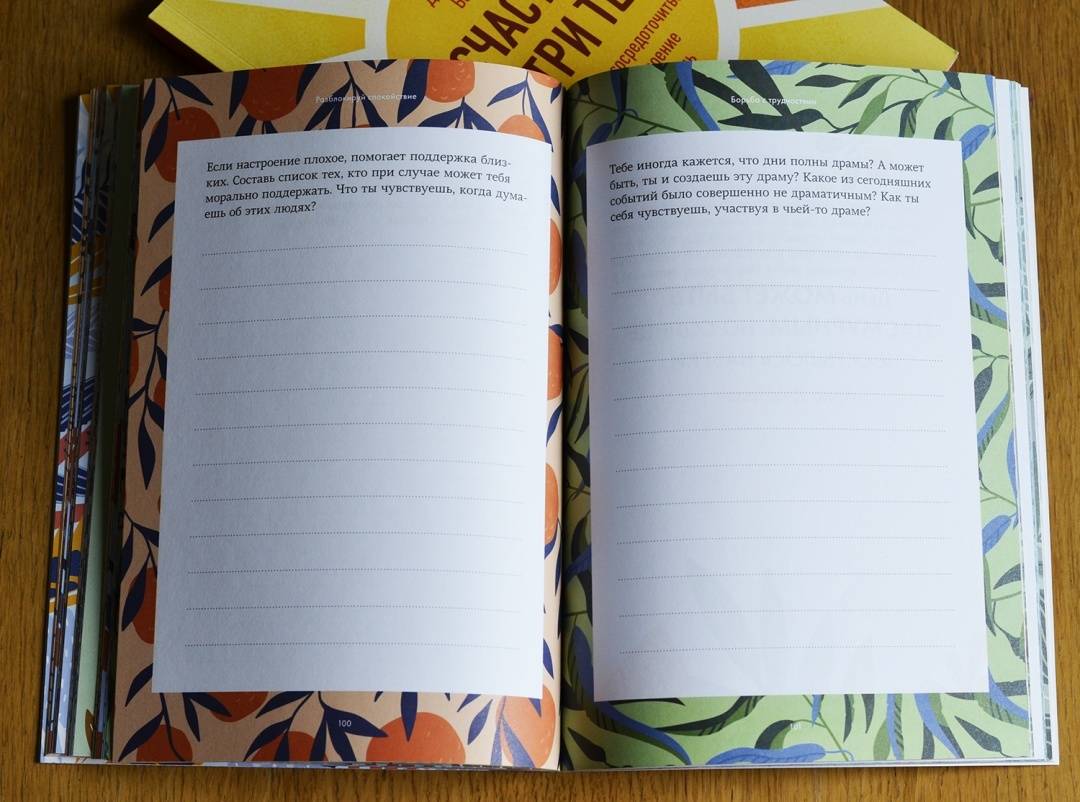 СЧАСТ
ТРИ ТЕ
сосредоточить
роение
Разблокируй спокойствие
Если настроение плохое, помогает поддержка близ-
ких. Составь список тех, кто при случае может тебя
морально поддержать. Что ты чувствуешь, когда дума-
ешь об этих людях?
100
Борьба с трудностями
Тебе иногда кажется, что дни полны драмы? А может
быть, ты и создаешь эту драму? Какое из сегодняшних
событий было совершенно не драматичным? Как ты
себя чувствуешь, участвуя в чьей-то драме?
101